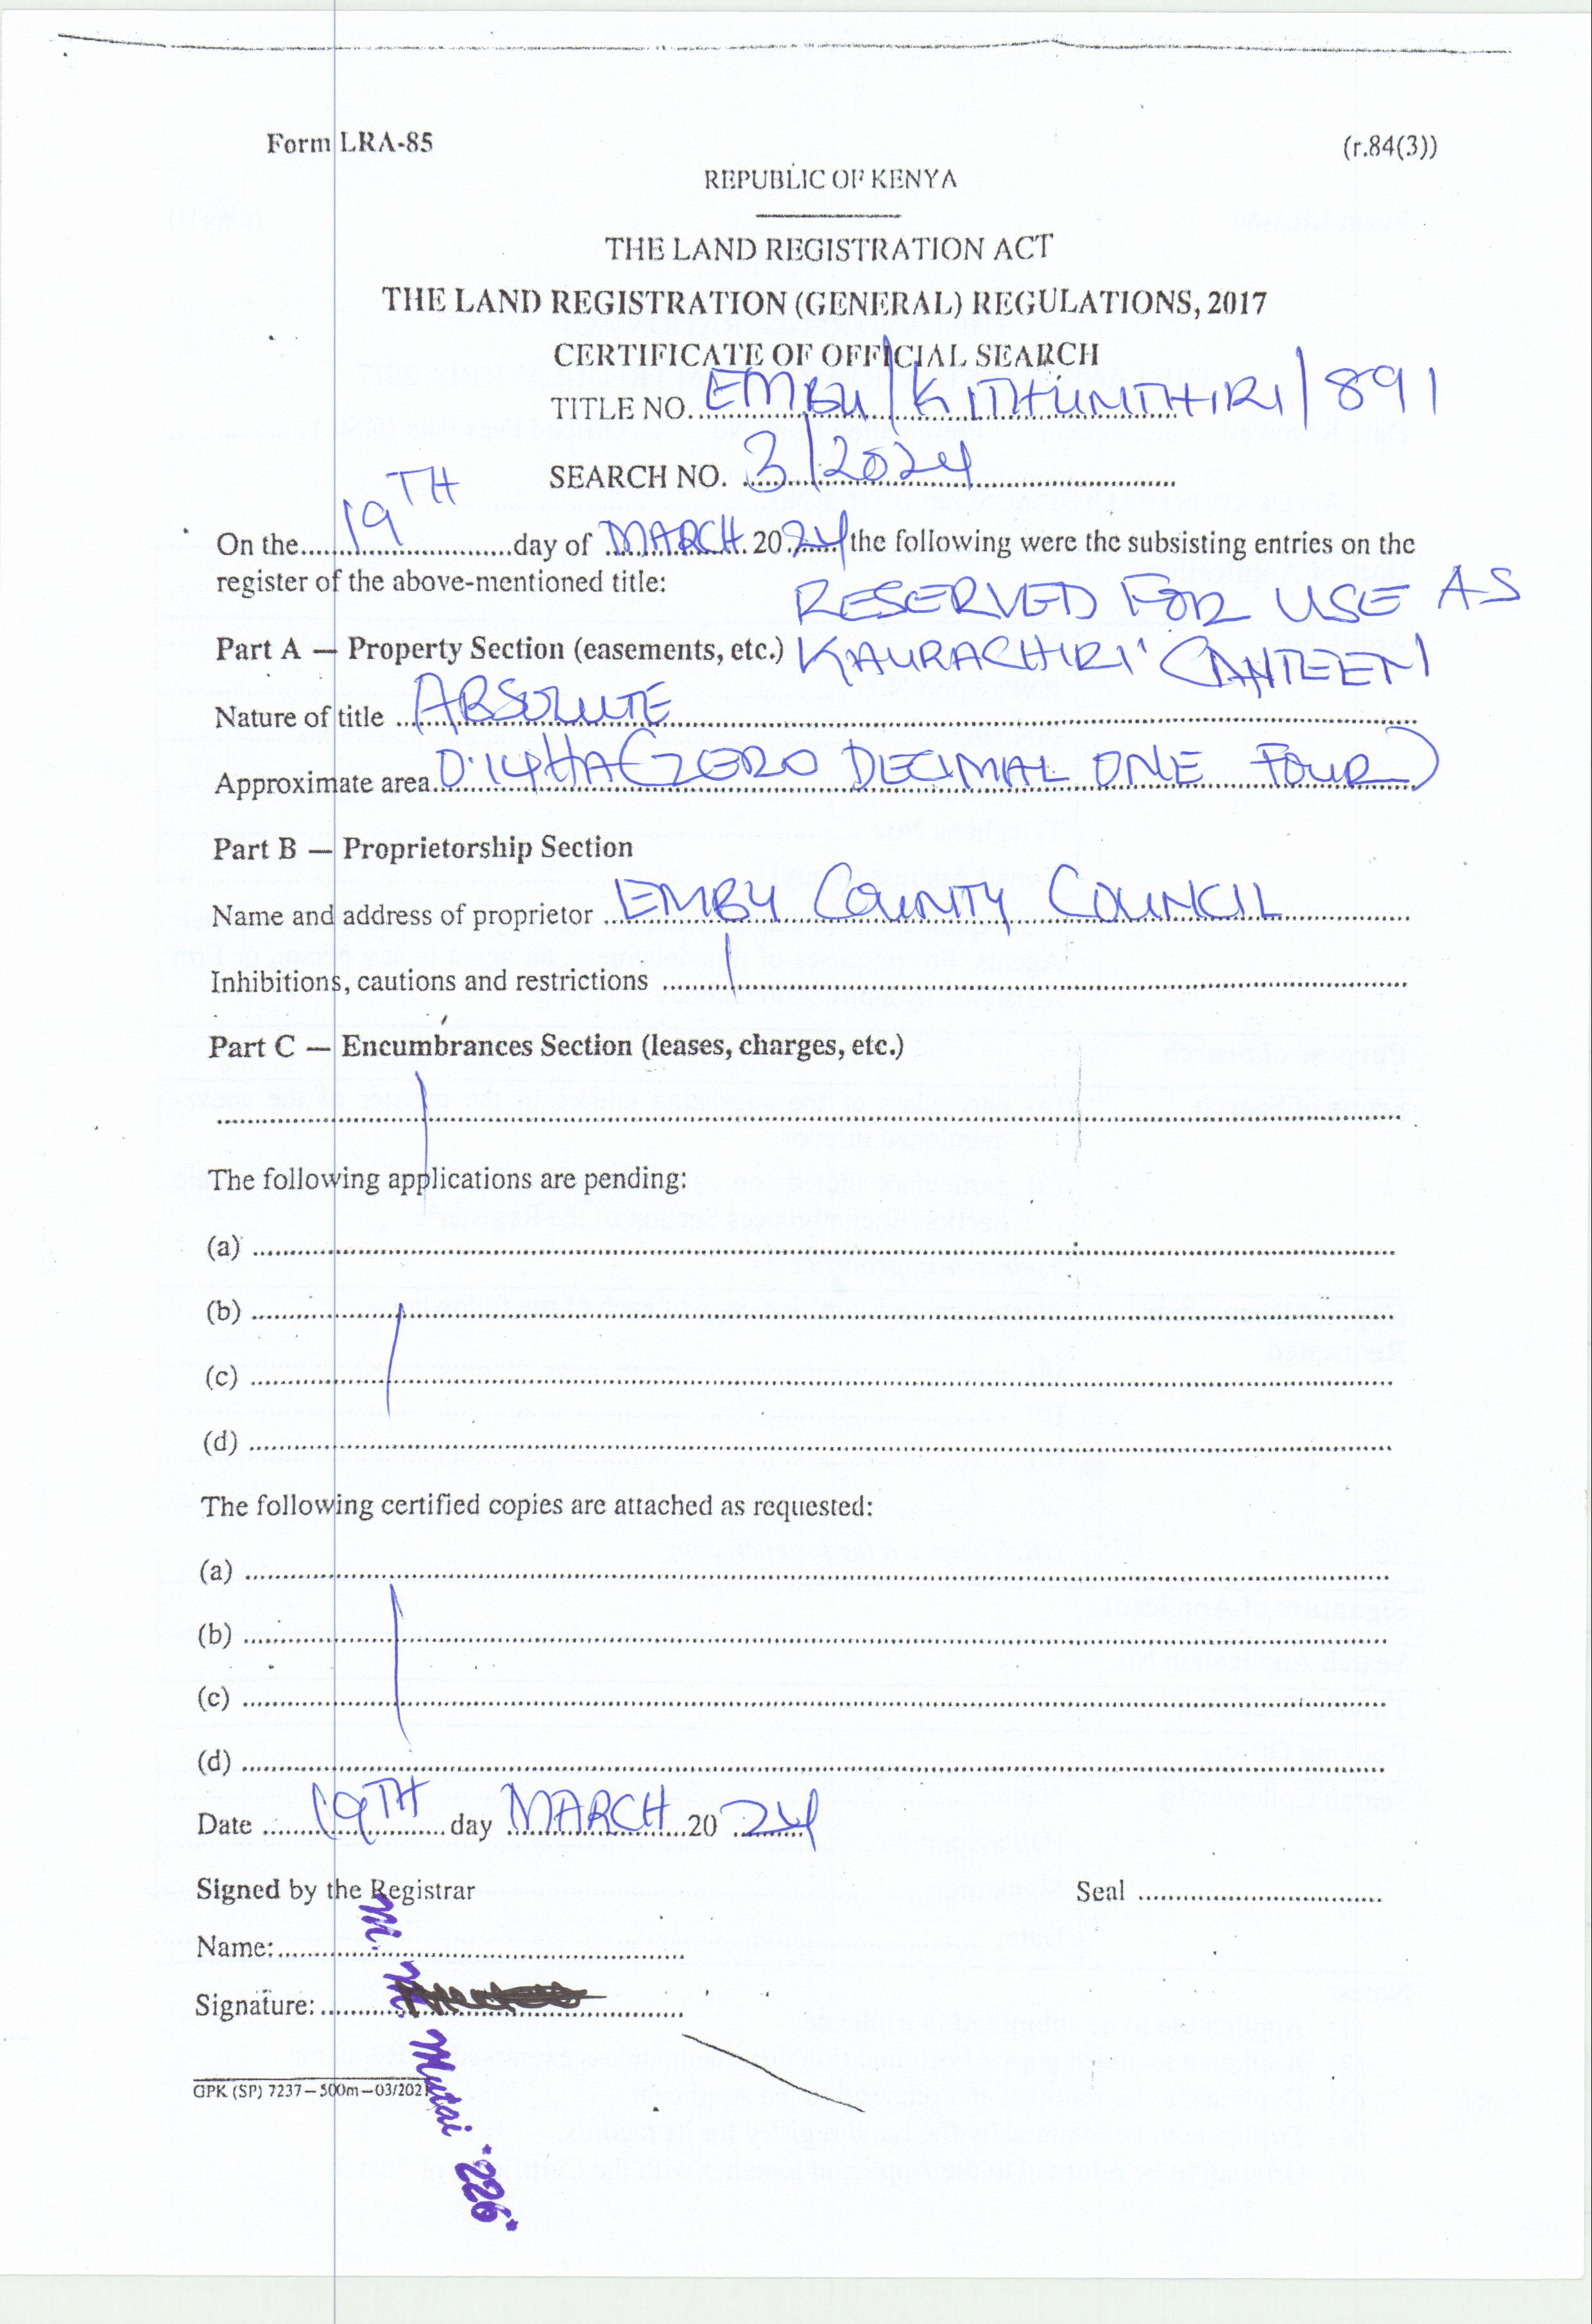 Form LRA-85 (r.84(3))
REPUBLIC OF KENYA
THE LAND REGISTRATION ACT
THE LAND REGISTRATION (GENERAL) REGULATIONS, 2017
CERTIFICATE OF OFFICIAL SEARCH
TITLE NO. EMBU/KITHUNTHIRI/891
SEARCH NO. 3/2024
On the 19TH day of MARCH 2024 the following were the subsisting entries on the
register of the above-mentioned title:
RESERVED FOR USE AS
Part A — Property Section (easements, etc.) KAURACHIRI CANTEEN
Nature of title ABSOLUTE
Approximate area 0.14HA (ZERO DECIMAL ONE FOUR)
Part B — Proprietorship Section
Name and address of proprietor EMBU COUNTY COUNCIL
Inhibitions, cautions and restrictions
Part C — Encumbrances Section (leases, charges, etc.)
The following applications are pending:
(a)
(b)
(c)
(d)
The following certified copies are attached as requested:
(a)
(b)
(c)
(d)
Date 19TH day MARCH 2024
Signed by the Registrar Seal
Name:
Signature:
GPK (SP) 7237–500m–03/2021
Mutai *226*